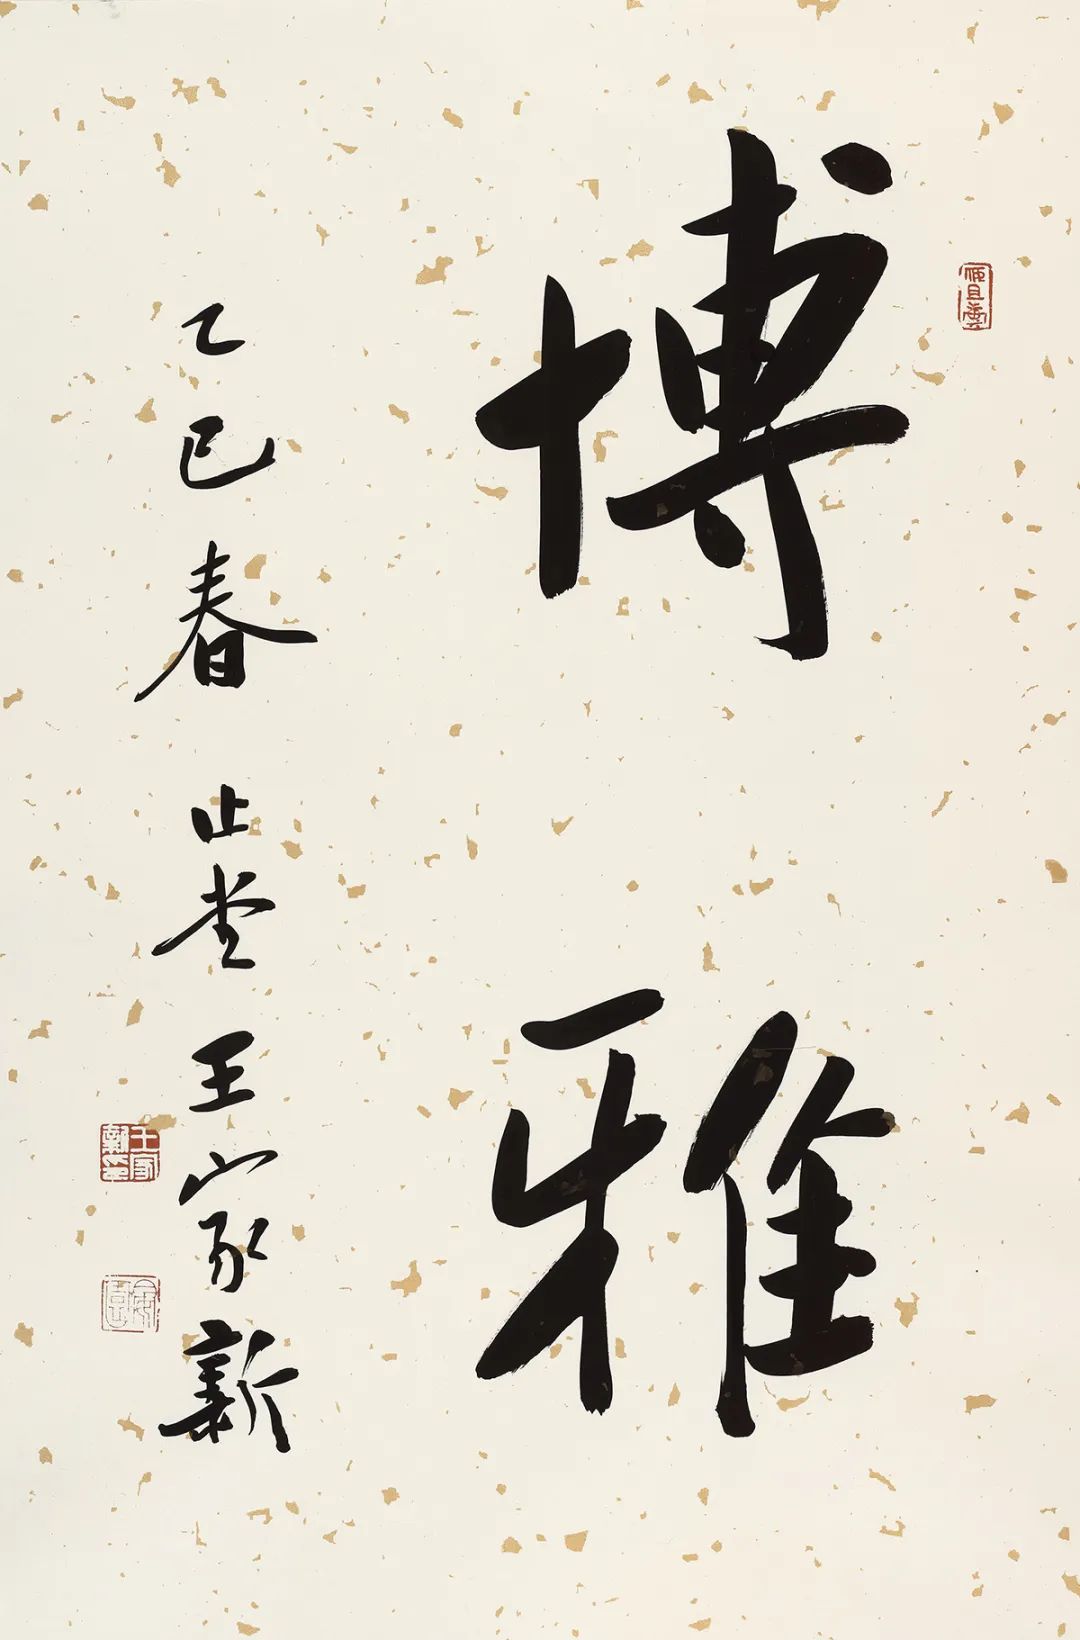 博雅
乙巳春 止堂 王家新
王家新印